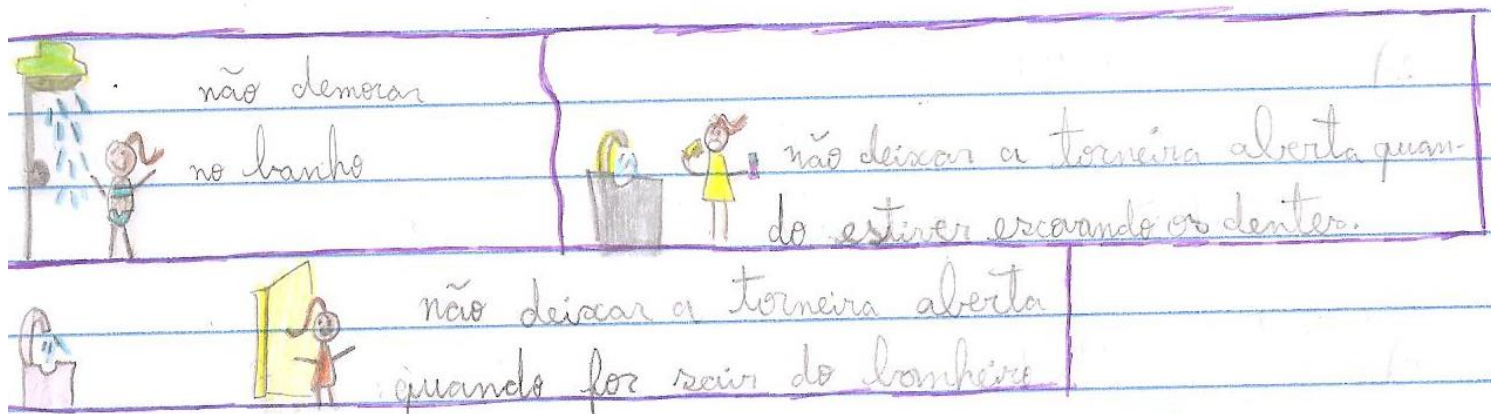 não demorar
no banho
não deixar a torneira aberta quan-
do estiver escovando os dentes.
não deixar a torneira aberta
quando for sair do banheiro